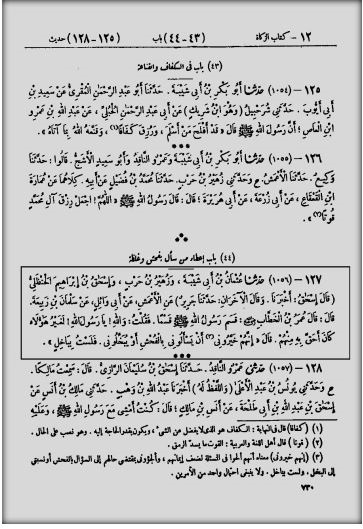 ١٢ - كتاب الزكاة (٤٣ - ٤٤) باب (١٢٥ - ١٢٨) حديث
(٤٣) باب في الكفاف والقناعة
١٢٥ - (١٠٥٤) حَدَّثَنَا أَبُو بَكْرِ بْنُ أَبِي شَيْبَةَ. حَدَّثَنَا أَبُو عَبْدِ الرَّحْمَٰنِ الْمُقْرِئُ عَنْ سَعِيدِ بْنِ
أَبِي أَيُّوبَ. حَدَّثَنِي شُرَحْبِيلُ (وَهُوَ ابْنُ شَرِيكٍ) عَنْ أَبِي عَبْدِ الرَّحْمَٰنِ الْحُبُلِيِّ، عَنْ عَبْدِ اللهِ بْنِ عَمْرِو
ابْنِ الْعَاصِ؛ أَنَّ رَسُولَ اللهِ ﷺ قَالَ «قَدْ أَفْلَحَ مَنْ أَسْلَمَ، وَرُزِقَ كَفَافًا(١)، وَقَنَّعَهُ اللهُ بِمَا آتَاهُ».
***
١٢٦ - (١٠٥٥) حَدَّثَنَا أَبُو بَكْرِ بْنُ أَبِي شَيْبَةَ وَعَمْرٌو النَّاقِدُ وَأَبُو سَعِيدٍ الْأَشَجُّ. قَالُوا: حَدَّثَنَا
وَكِيعٌ. حَدَّثَنَا الْأَعْمَشُ. ع وَحَدَّثَنِي زُهَيْرُ بْنُ حَرْبٍ. حَدَّثَنَا مُحَمَّدُ بْنُ فُضَيْلٍ عَنْ أَبِيهِ. كِلَاهُمَا عَنْ عُمَارَةَ
ابْنِ الْقَعْقَاعِ، عَنْ أَبِي زُرْعَةَ، عَنْ أَبِي هُرَيْرَةَ؛ قَالَ: قَالَ رَسُولُ اللهِ ﷺ «اللَّهُمَّ! اجْعَلْ رِزْقَ آلِ مُحَمَّدٍ
قُوتًا(٢)».
(٤٤) باب إعطاء من سأل بفحش وغلظة
١٢٧ - (١٠٥٦) حَدَّثَنَا عُثْمَانُ بْنُ أَبِي شَيْبَةَ، وَزُهَيْرُ بْنُ حَرْبٍ، وَإِسْحَٰقُ بْنُ إِبْرَاهِيمَ الْحَنْظَلِيُّ
(قَالَ إِسْحَٰقُ: أَخْبَرَنَا. وَقَالَ الْآخَرَانِ: حَدَّثَنَا جَرِيرٌ) عَنِ الْأَعْمَشِ، عَنْ أَبِي وَائِلٍ، عَنْ سَلْمَانَ بْنِ رَبِيعَةَ.
قَالَ: قَالَ عُمَرُ بْنُ الْخَطَّابِ: قَسَمَ رَسُولُ اللهِ ﷺ قَسْمًا. فَقُلْتُ: وَاللهِ! يَا رَسُولَ اللهِ! لَغَيْرُ هَٰؤُلَاءِ
كَانَ أَحَقَّ بِهِ مِنْهُمْ. قَالَ «إِنَّهُمْ خَيَّرُونِي(٣) أَنْ يَسْأَلُونِي بِالْفُحْشِ أَوْ يُبَخِّلُونِي. فَلَسْتُ بِبَاخِلٍ».
***
١٢٨ - (١٠٥٧) حَدَّثَنِي عَمْرٌو النَّاقِدُ. حَدَّثَنَا إِسْحَٰقُ بْنُ سُلَيْمَانَ الرَّازِيُّ. قَالَ: سَمِعْتُ مَالِكًا.
ع وَحَدَّثَنِي يُونُسُ بْنُ عَبْدِ الْأَعْلَى (وَاللَّفْظُ لَهُ) أَخْبَرَنَا عَبْدُ اللهِ بْنُ وَهْبٍ. حَدَّثَنِي مَالِكُ بْنُ أَنَسٍ عَنْ
إِسْحَٰقَ بْنِ عَبْدِ اللهِ بْنِ أَبِي طَلْحَةَ، عَنْ أَنَسِ بْنِ مَالِكٍ؛ قَالَ: كُنْتُ أَمْشِي مَعَ رَسُولِ اللهِ ﷺ، وَعَلَيْهِ
(١) (كفافا) قال في النهاية: الكفاف هو الذي لا يفضل عن الشيء، ويكون بقدر الحاجة إليه. وهو نصب على الحال.
(٢) (قوتا) قال أهل اللغة والعربية: القوت ما يسد الرمق.
(٣) (إنهم خيروني) معناه أنهم ألحوا في المسئلة لضعف إيمانهم، وألجؤني بمقتضى حالهم إلى السؤال بالفحش أو نسبتي
إلى البخل. ولست بباخل. ولا ينبغي احتمال واحد من الأمرين.
٧٣٠